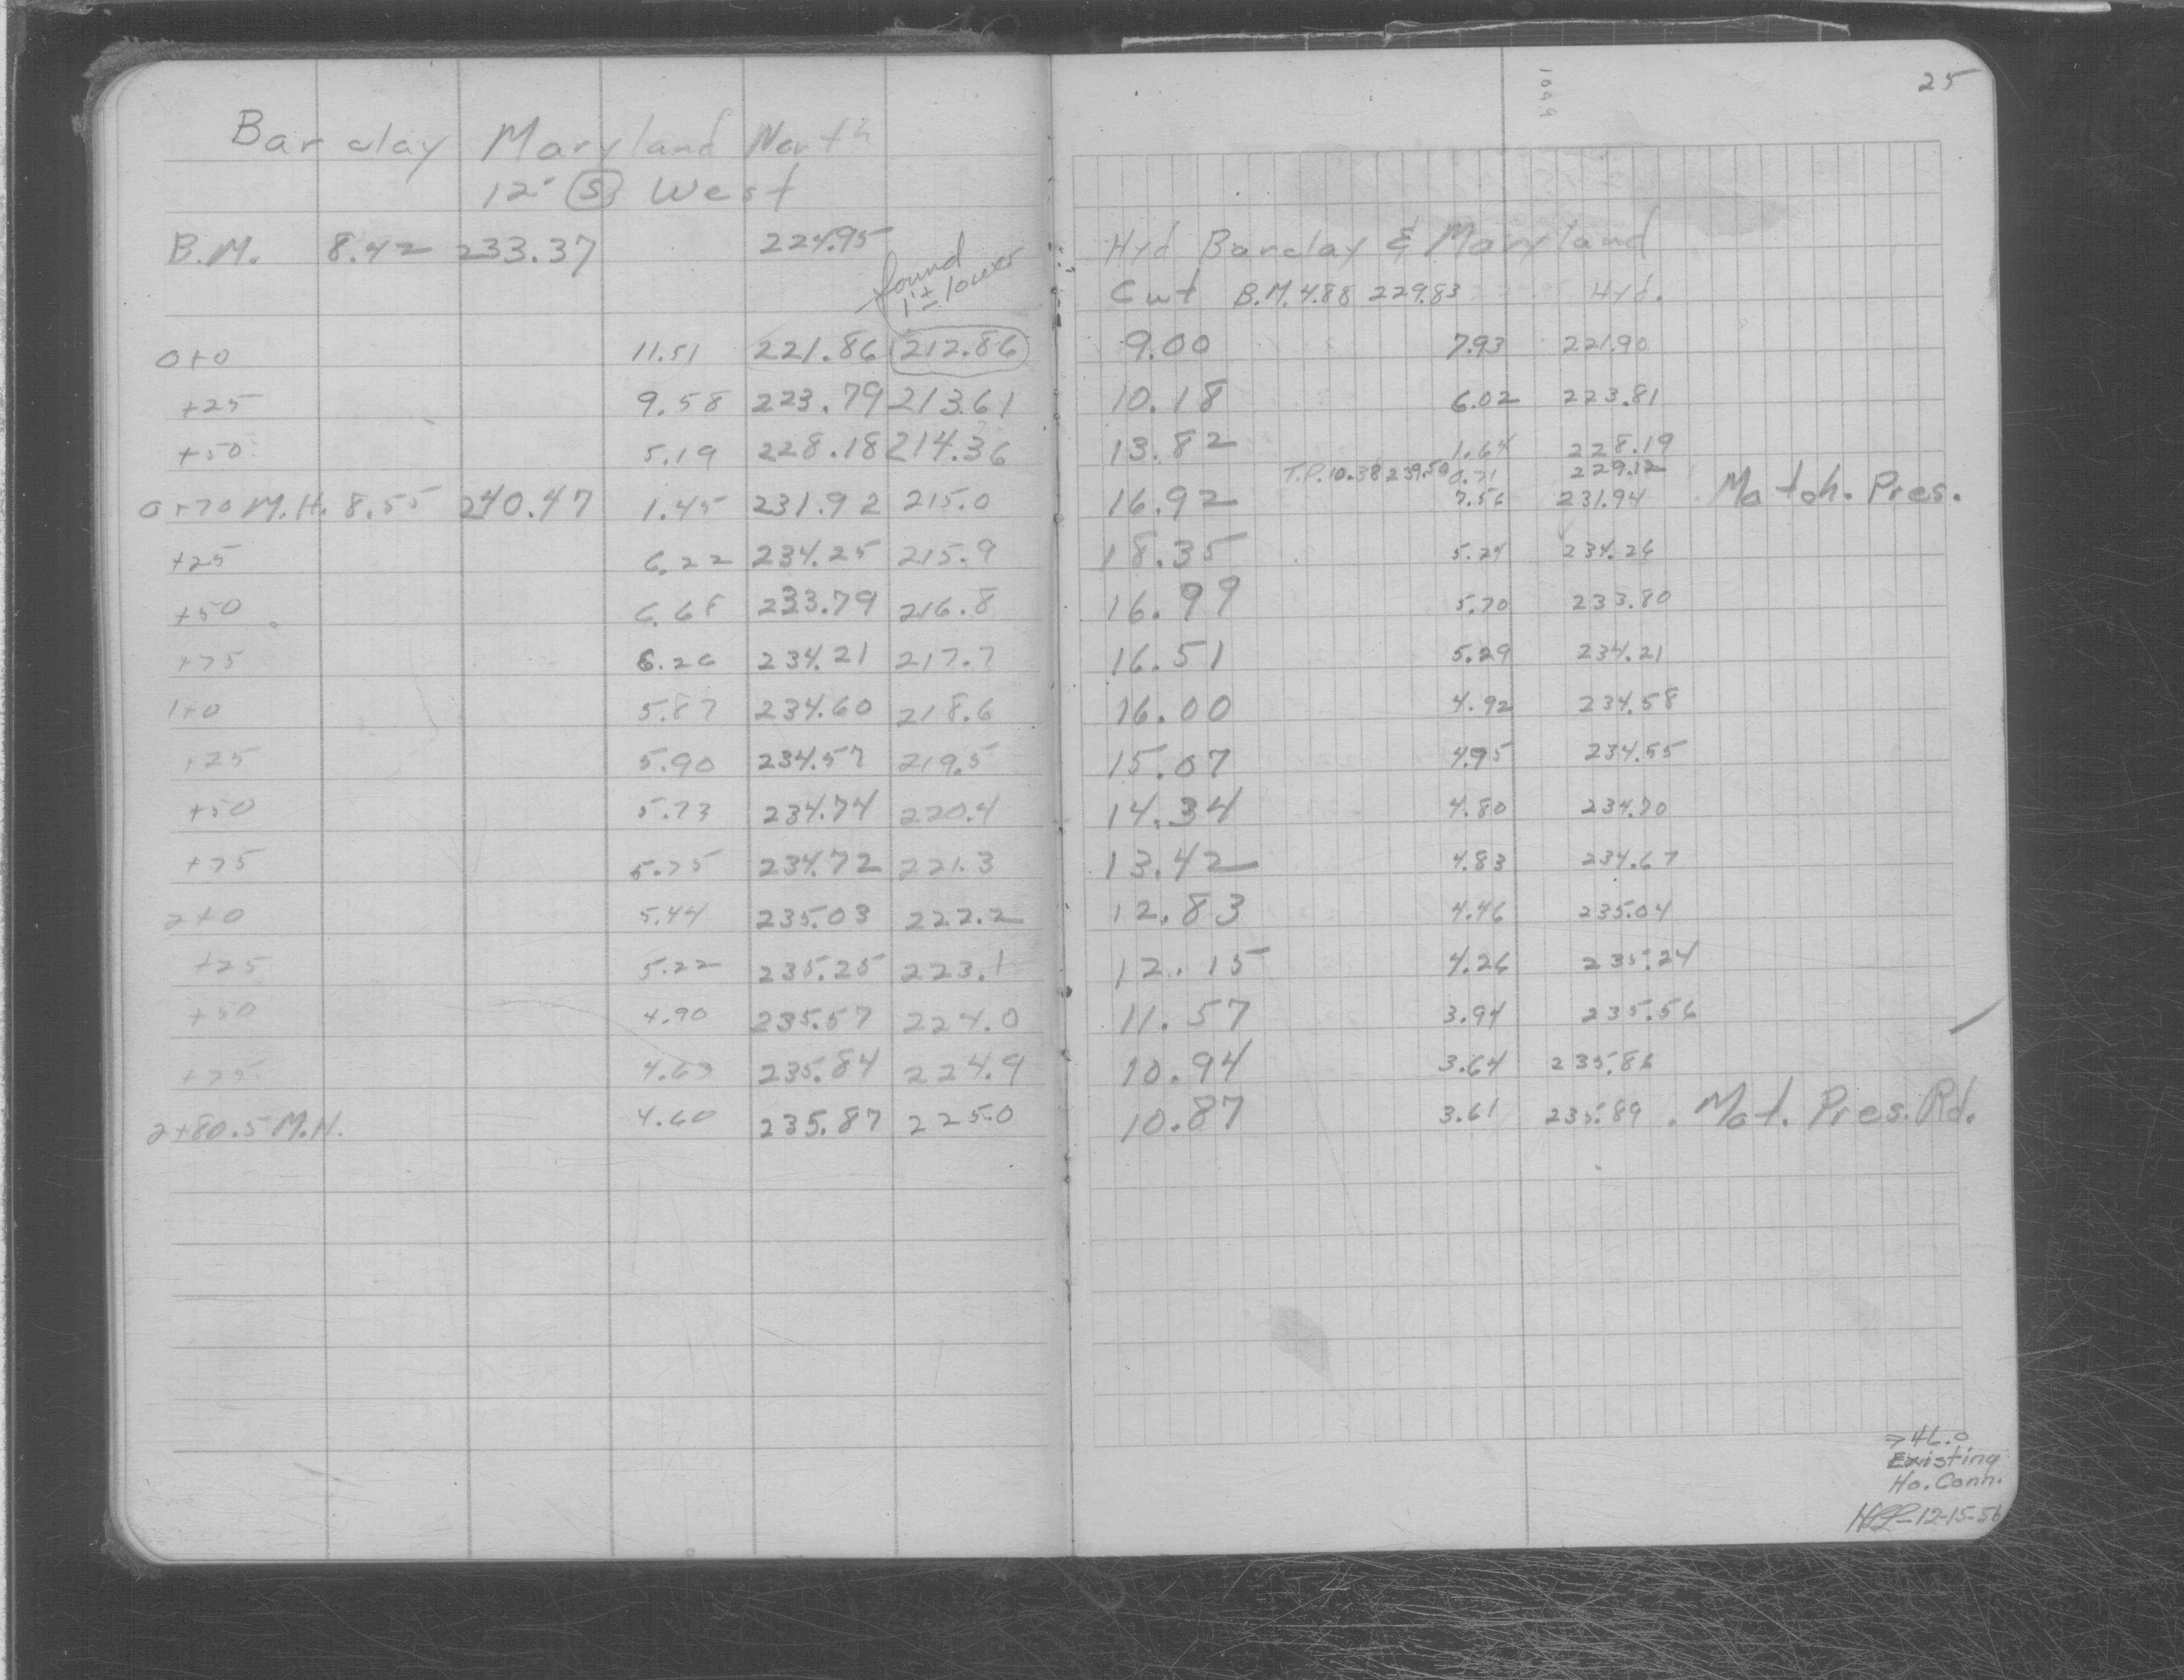 25
1049
Barclay Maryland North
12" (S) West
B.M. 8.42 233.37 224.95 Hyd Barclay & Maryland
found 1'± lower
Cut B.M. 4.88 229.83 Hyd.
0+0 11.51 221.86 212.86 9.00 7.93 221.90
+25 9.58 223.79 213.61 10.18 6.02 223.81
+50 5.19 228.18 214.36 13.82 1.64 228.19
T.P. 10.38 239.50 0.71 229.12
0+70 M.H. 8.55 240.47 1.45 231.92 215.0 16.92 7.56 231.94 Match. Pres.
+25 6.22 234.25 215.9 18.35 5.24 234.26
+50 6.68 233.79 216.8 16.99 5.70 233.80
+75 6.26 234.21 217.7 16.51 5.29 234.21
1+0 5.87 234.60 218.6 16.00 4.92 234.58
+25 5.90 234.57 219.5 15.07 4.95 234.55
+50 5.73 234.74 220.4 14.34 4.80 234.70
+75 5.75 234.72 221.3 13.42 4.83 234.67
2+0 5.44 235.03 222.2 12.83 4.46 235.04
+25 5.22 235.25 223.1 12.15 4.26 235.24
+50 4.90 235.57 224.0 11.57 3.94 235.56
+75 4.63 235.84 224.9 10.94 3.64 235.86
2+80.5 M.H. 4.60 235.87 225.0 10.87 3.61 235.89 Mat. Pres. Rd.
→46.0
Existing
Ho. Conn.
12-15-56